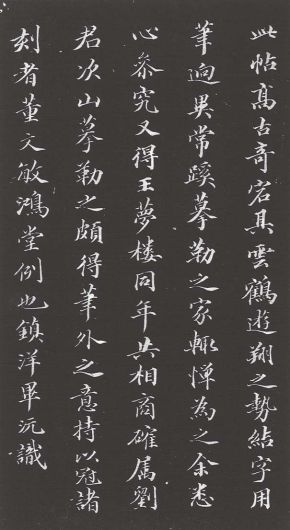 此帖高古奇宕具雲鶴遊翔之勢結字用
筆迥異常蹊摹勒之家輒憚為之余悉
心叅究又得王夢楼同年共相商確属劉
君次山摹勒之頗得筆外之意持以冠諸
刻者董文敏鴻堂例也鎮洋畢沅識